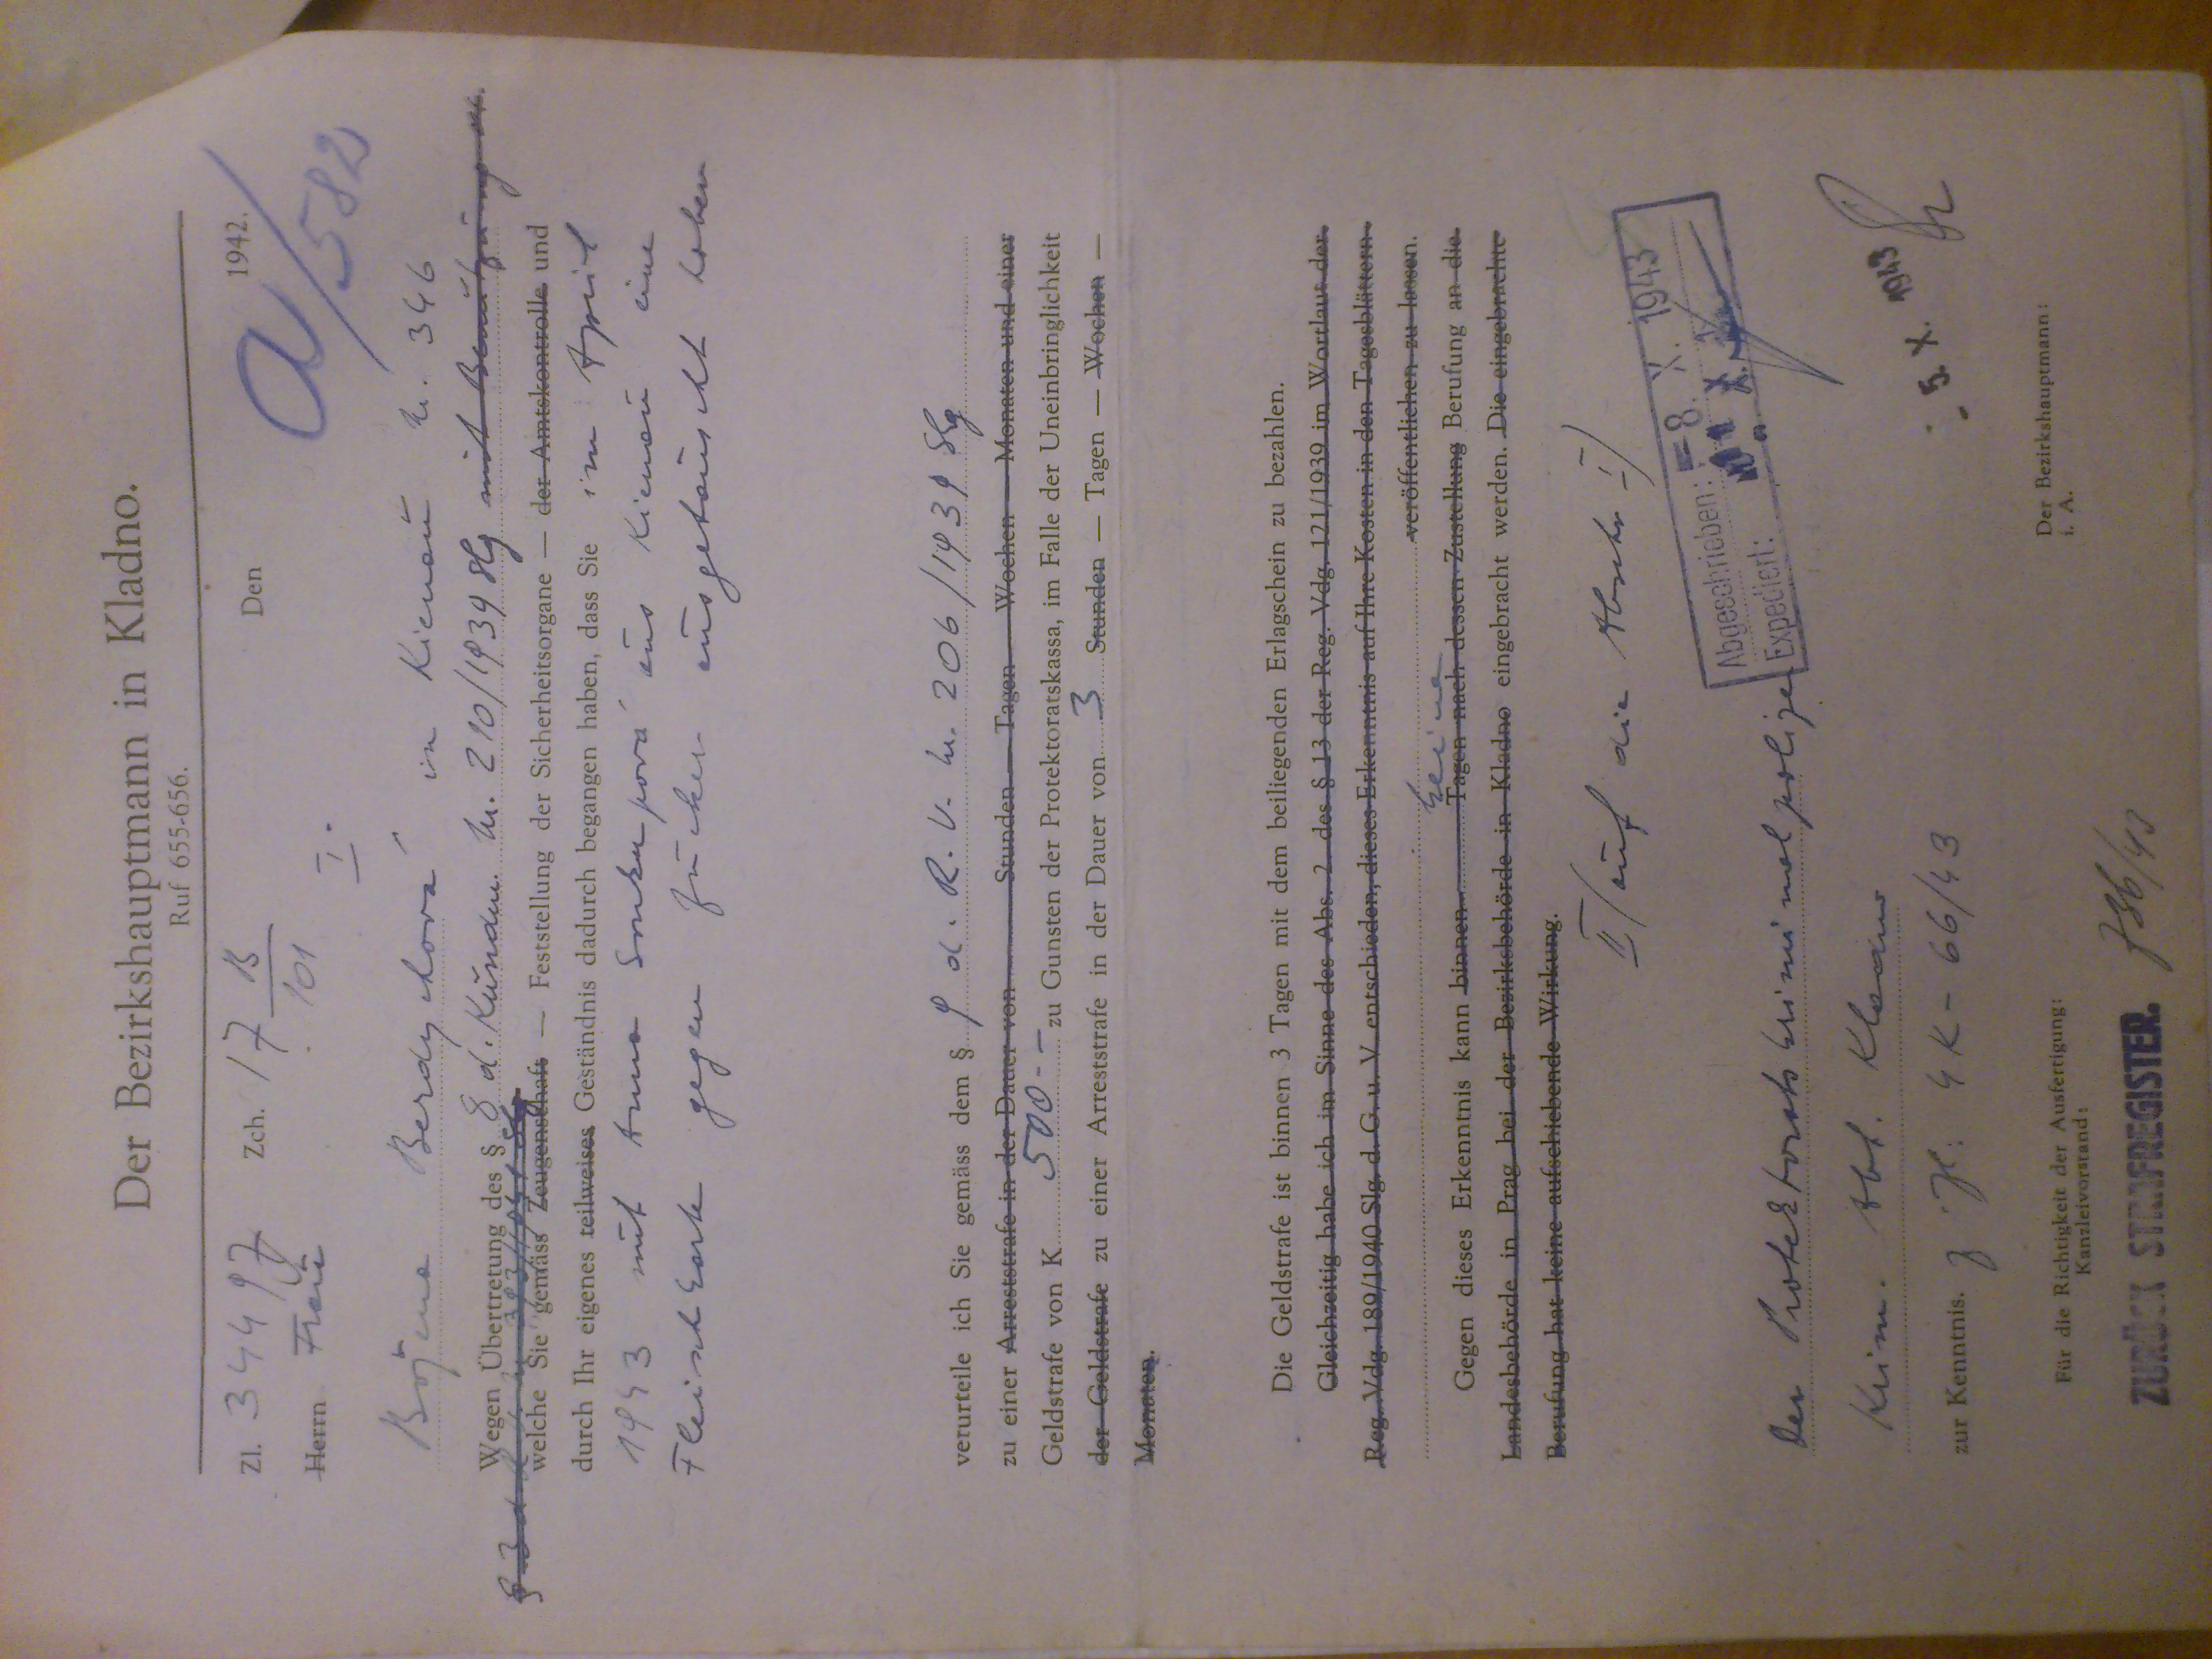 Der Bezirkshauptmann in Kladno.
Ruf 655-656.
Zl. 34497 Zch. 17 B/101 Den 1942.
a/582
Herrn Frau
I.
Božena Berdychová in Kienau Nr. 346
Wegen Übertretung des § 8 d. Kundm. Nr. 210/1939 Slg mit Benützung
§ 3 d. R. V. Nr. 393/1941 Slg
welche Sie gemäss Zeugenschaft — Feststellung der Sicherheitsorgane — der Amtskontrolle und
durch Ihr eigenes teilweises Geständnis dadurch begangen haben, dass Sie im April
1943 mit Anna aus Kienau eine
Fleischkarte gegen Zucker ausgetauscht haben
verurteile ich Sie gemäss dem § 9 d. R. V. Nr. 206/1939 Slg
zu einer Arreststrafe in der Dauer von Stunden — Tagen — Wochen — Monaten und einer
Geldstrafe von K 500.-- zu Gunsten der Protektoratskassa, im Falle der Uneinbringlichkeit
der Geldstrafe zu einer Arreststrafe in der Dauer von 3 Stunden — Tagen — Wochen —
Monaten.
Die Geldstrafe ist binnen 3 Tagen mit dem beiliegenden Erlagschein zu bezahlen.
Gleichzeitig habe ich im Sinne des Abs. 2. des § 13 der Reg. Vdg. 121/1939 im Wortlaut der
Reg. Vdg. 189/1940 Slg. d. G. u. V. entschieden, dieses Erkenntnis auf Ihre Kosten in den Tagesblättern
veröffentlichen zu lassen.
keine
Gegen dieses Erkenntnis kann binnen Tagen nach dessen Zustellung Berufung an die
Landesbehörde in Prag bei der Bezirksbehörde in Kladno eingebracht werden. Die eingebrachte
Berufung hat keine aufschiebende Wirkung.
II (auf die Abschr I)
Abgeschrieben: -8. X. 1943
Expediert: X.
Der Protektoratskriminalpolizei
Krim. Abt. Kladno
- 5. X. 1943
zur Kenntnis. z Zl: 4K - 66/43
Für die Richtigkeit der Ausfertigung:
Kanzleivorstand:
Der Bezirkshauptmann:
i. A.
ZURÜCK STRAFREGISTER. 736/43